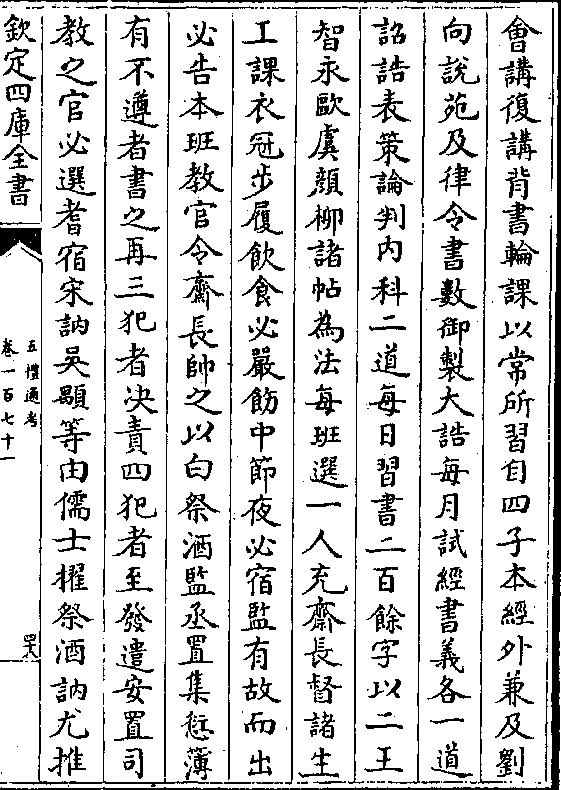 會講復講背書輪課以常所習自四子本經外兼及劉
向說苑及律令書數御製大誥每月試經書義各一道
詔誥表策論判内科二道每日習書二百餘字以二王
智永歐虞顔柳諸帖為法每班選一人充齋長督諸生
工課衣冠步履飲食必嚴飭中節夜必宿監有故而出
必告本班教官令齋長帥之以白祭酒監丞置集愆簿
有不遵者書之再三犯者决責四犯者至發遣安置司
教之官必選耆宿宋訥吳顒等由儒士擢祭酒訥尤推
欽定四庫全書
五禮通考
卷一百七十一
四十八